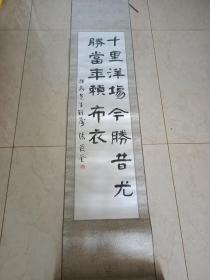 十里洋場今勝昔尤
勝當年賴布衣